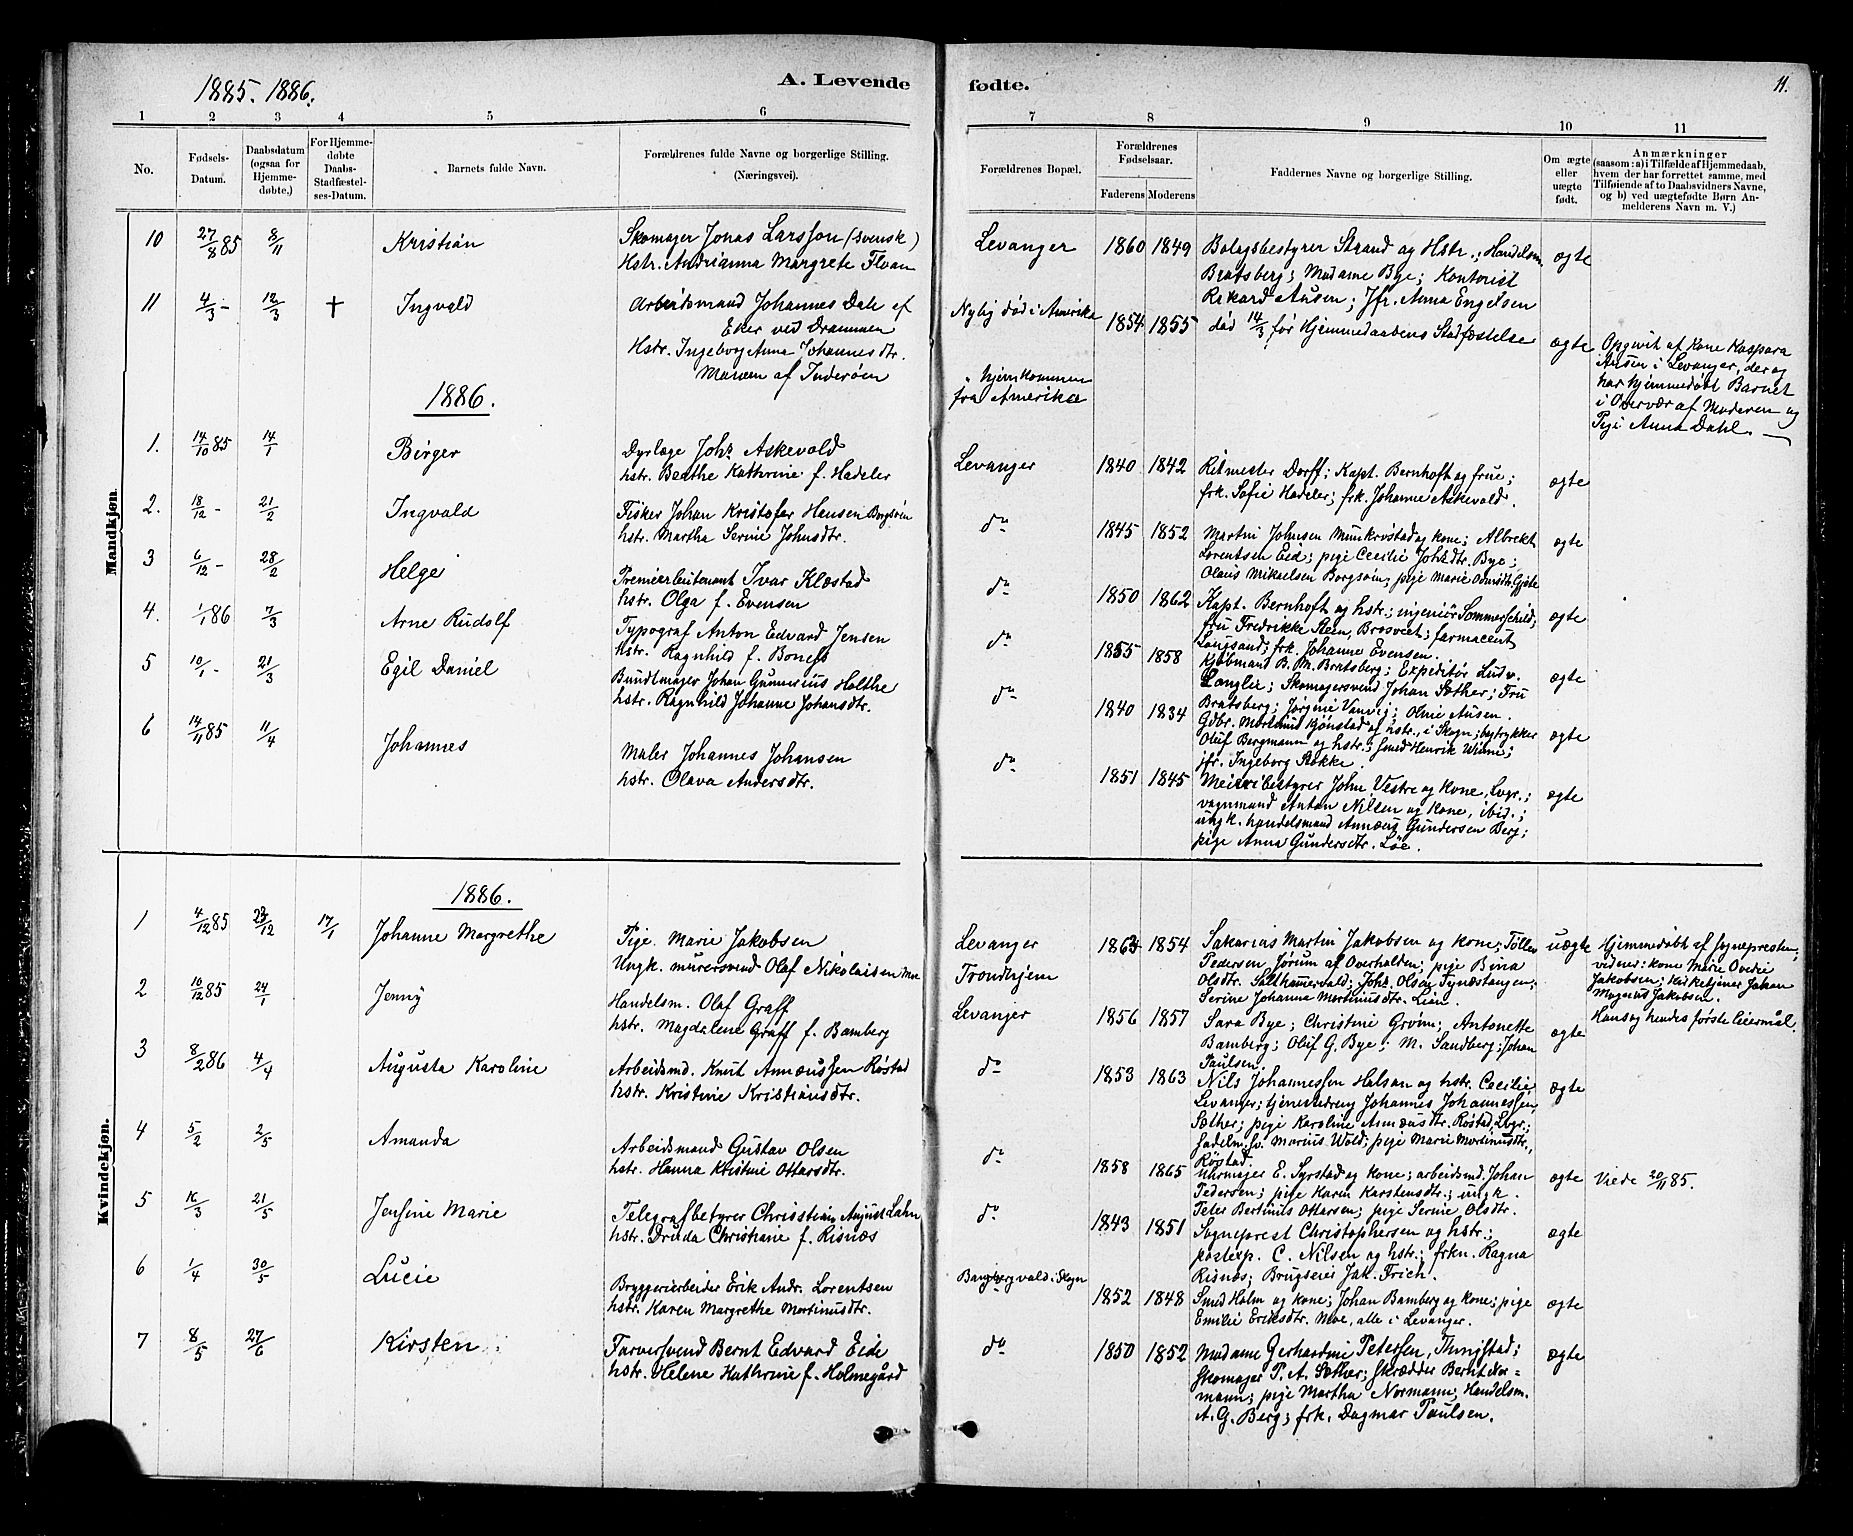 1885. 1886.
A. Levende
fødte.
11.
1 2 3 4 5 6 7 8 9 10 11
No.
Fødsels-
Datum.
Daabsdatum
(ogsaa for
Hjemme-
døbte,)
For Hjemme-
døbte
Daabs-
Stadfæstel-
ses-Datum.
Barnets fulde Navn.
Forældrenes fulde Navne og borgerlige Stilling.
(Næringsvei).
Forældrenes Bopæl.
Forældrenes
Fødselsaar.
Faderens Moderens
Faddernes Navne og borgerlige Stilling.
Om ægte
eller
uægte
født.
Anmærkninger
(saasom: a) i Tilfælde af Hjemmedaab,
hvem der har forrettet samme, med
Tilføiende af to Daabsvidners Navne,
og b) ved uægtefødte Børn An-
melderens Navn m. V.)
Mandkjøn.
10 27/8 85 8/11 Kristian
Skomager Jonas Larsson (svensk)
Hstr. Andrianna Margrete Floan
Levanger 1860 1849
Bolagsbestyrer Strand og Hstr.; Handelsm.
Bratsberg; Madame Bye; Kontorist
Rikard Ausen; Jfr. Anna Engelsen
ægte
11 4/3 - 12/3 † Ingvald
Arbeidsmand Johannes Dahl af
Eker ved Drammen
Hstr. Ingeborg Anna Johannesdtr.
af Inderøen
Nylig død i Amerika
" hjemkommen
fra Amerika
1854 1855
død 14/3 før Hjemmedaabens Stadfæstelse
ægte
Opgivit af Kone Kaspara
Ausen i Levanger, der og
har hjemmedøbt Barnet
i Overvær af Moderen og
Pige Anna Dahl.
1886.
1. 14/10 85 14/1 Birger
Dyrlæge Johs. Askevold
hstr. Beathe Kathrine f. Hadeler
Levanger 1840 1842
Ritmester Dorff; Kapt. Bernhoft og frue;
frk. Sofie Hadeler; frk. Johanne Askevold.
ægte
2. 18/12 - 21/2 Ingvald
Fisker Johan Kristofer Hansen Borgsöin
hstr. Martha Serine Johnsdtr.
do 1845 1852
Martin Johnsen Munkröstad og kone; Albrekt
Lorentsen Eid; pige Cecilie Johsdtr. Bye;
Olaus Mikaelsen Borgsöin; pige Marie
ægte
3 6/12 - 28/2 Helge
Premierlieutenant Ivar Klæstad
hstr. Olga f. Evensen
do 1850 1862
Kapt. Bernhoft og hstr; ingeniör Sommerschild;
fru Fredrikke Stein, Brosveet; farmaceut
Langsand; frk. Johanne Evensen.
ægte
4. 1/1 86 7/3 Arne Rudolf
Typograf Anton Edvard Jensen
hstr. Ragnhild f. Boness
do 1855 1858
Kjöbmand B. M. Bratsberg; Expeditör Ludv.
Langlie; Skomagersvend Johan Sæther; Fru
Bratsberg; Jörgine Vanvig; Oline Ausen.
ægte
5 10/1 - 21/3 Egil Daniel
Bundtmager Johan Gunnerius Holthe
hstr. Ragnhild Johanne Johansdtr.
do 1840 1834
Gdbr. Mortinus Kjönstad og hstr., i Skogn; bogtrykker
Oluf Bergmann og hstr.; smed Henrik Winne;
jfr. Ingeborg Stokke.
ægte
6 14/11 85 11/4 Johannes
Maler Johannes Johansen
hstr. Olava Andersdtr.
do 1851 1845
Meieribestyrer John Vestre og kone, Lvgr.;
vognmand Anton Nilsen og kone, ibid.;
ungk. handelsmand Annæus Gundersen Berg;
pige Anna Gundersdtr. Löe.
ægte
Kvindekjøn.
1886.
1 4/12 85 23/12 17/1 Johanne Margrethe
Pige Marie Jakobsen
Ungk. murersvend Olaf Nikolaisen Moe
Levanger
Trondhjem
1864 1854
Sakarias Martin Jakobsen og kone; Töllev
Pedersen Jörum af Overhalden; pige Bina
Olsdtr. Salthamervald; Johs. Olsen Tynæstangen;
Serine Johanna Mortinusdtr. Lian.
uægte
Hjemmedøbt af Sognepresten;
vidner: kone Marie Ovedie
Jakobsen; kirketjener Johan
Magnus Jakobsen.
Hans og hendes første leiermål.
2 10/12 85 24/1 Jenny
Handelsm. Olaf Graff
hstr. Magdalene Graff f. Bamberg
Levanger 1856 1857
Sara Bye; Christine Gröm; Antonette
Bamberg; Oluf G. Bye; M. Sandberg; Johan
Paulsen.
ægte
3 8/2 86 4/4 Augusta Karoline
Arbeidsmd. Knut Annæussen Röstad
hstr. Kristine Kristiansdtr.
do 1853 1863
Nils Johannessen Halsan og hstr. Cecilie,
Levanger; tjenestedreng Johannes Johannessen
Sæther; pige Karoline Annæusdtr. Röstad, Lvgr.;
Marius Wold; pige Marie Mortinusdtr.,
Röstad.
ægte
4 5/2 2/5 Amanda
Arbeidsmand Gustav Olsen
hstr. Hanna Kristine Ottarsdtr.
do 1858 1865
Uhrmager E. Syrstad og kone; arbeidsmd. Johan
Pedersen; pige Karen Karstensdtr.; ungk.
Peter Bertinils Ottarsen; pige Serine Olsdtr.
ægte
Viede 20/11 85.
5 16/3 21/5 Jensine Marie
Telegrafbetyrer Christian August Lahn
hstr. Druda Christiane f. Risnæs
do 1843 1851
Sogneprest Christophersen og hstr.;
postexp. C. Nilsen og hstr.; frkn. Ragna
Risnæs; Brugseier Jak. Frich.
ægte
6 1/4 30/5 Lucie
Bryggeriarbeider Erik Andr. Lorentsen
hstr. Karen Margrethe Mortinusdtr.
Bamberg vald i Skogn
1852 1848
Smed Holm og kone; Johan Bamberg og kone; pige
Emilie Eriksdtr. Moe, alle i Levanger.
ægte
7 8/5 27/6 Kirsten
Farversvend Bernt Edvard Eide
hstr. Helene Kathrine f. Holmegård
do 1850 1852
Madame Gerhardine Petersen, Thingstad;
Skomager P. A. Sæther; skrædder Bernt Nor=
mann; pige Martha Normann; Handelsm.
A. G. Berg; frk. Dagmar Paulsen.
ægte